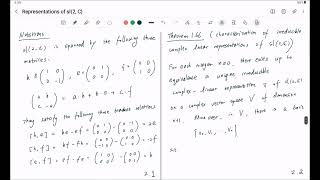 Representations of sl(2, C)
Notations:
sl(2, C) is spanned by the following three
matrices.
h = (1 0 0 -1), e = (0 1 0 0), f = (0 0 1 0)
(a b c -a) = a·h + b·e + c·f
They satisfy the following three bracket relations
[h, e] = he - eh =
[h, f] = hf - fh =
[e, f] = ef - fe = = h
2.1
Theorem 1.66 (Characterization of irreducible
complex linear representations of sl(2, C))
For each integer n≥0, there exists up to
equivalence a unique irreducible
complex-linear representation of sl(2, C)
on a complex vector space V of dimension
n+1. Moreover, in V, there is a basis
{v₀, v₁, vₙ}
2.2